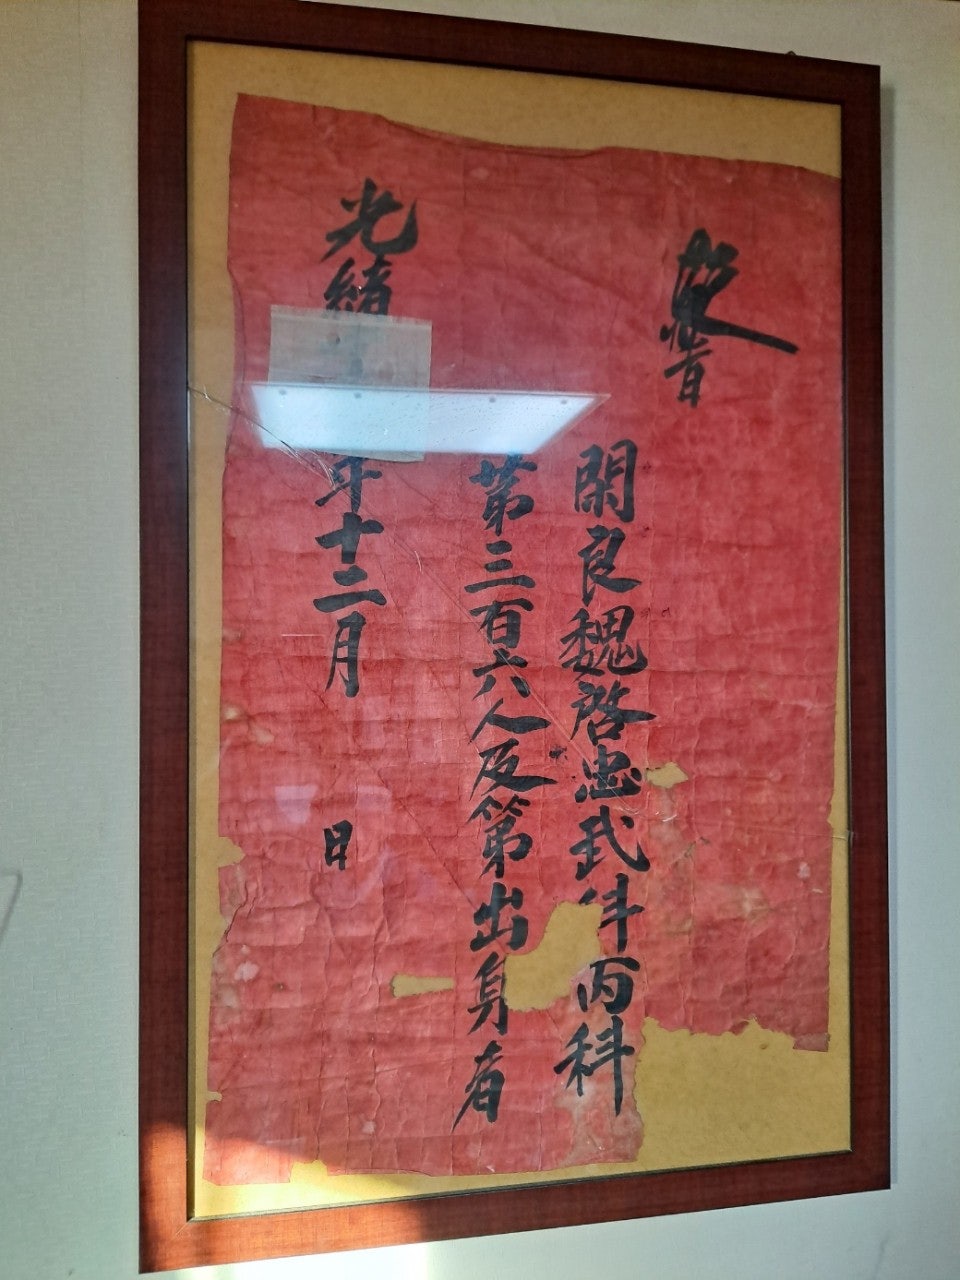 敎旨
閑良魏啓忠武科丙科
第三百六人及第出身者
光緖 年十二月 日